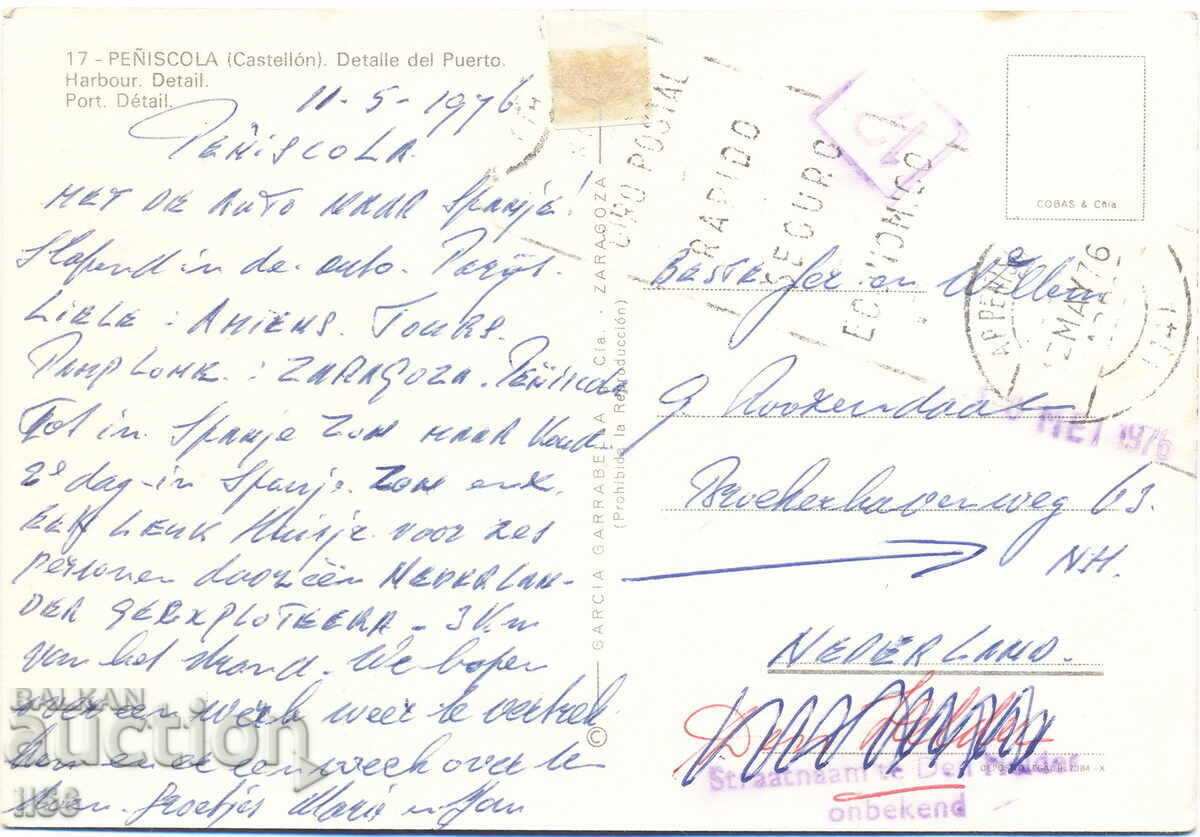 17 - PEÑISCOLA (Castellón). Detalle del Puerto.
Harbour. Detail.
Port. Détail.
11-5-1976
PEÑISCOLA
MET DE AUTO NAAR Spanje!
Slapend in de auto. Parijs.
LIELE : AMIENS. TOURS.
PAMPLONA : ZARAGOZA. Peñiscola
Tot in Spanje ZON MAAR koud
2e dag in Spanje ZON
EEN LEUK Huisje voor zes
personen door één NEDERLAN-
DER GEEXPLOTEERA - 3 Km
van het strand. We hopen
over een week weer te vertrek
ken en een week over te
Groetjes Marie en Jan
GARCIA GARRABELLA y Cía. - ZARAGOZA
(Prohibida la Reproducción)
©
GIRO POSTAL
RAPIDO
SEGURO
ECONOMICO
COBAS & Chia
MAY 76
1141
MEI 1976
Beste en Willem
g
63.
NH.
NEDERLAND.
Den Helder
Straatnaam te Den Helder
onbekend
BALKAN
auction